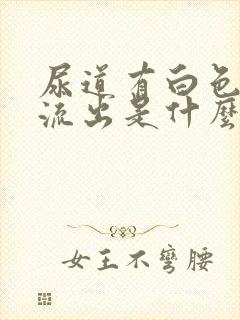 尿道有白色
流出是什麼
女王不彎腰